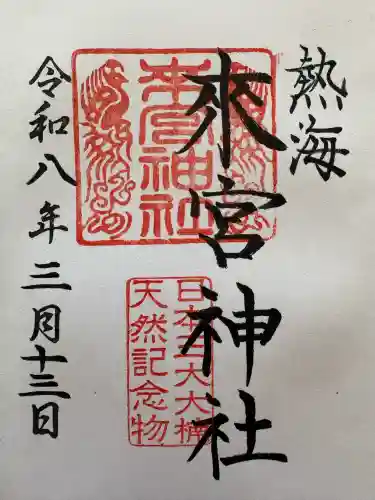 熱海
來宮神社
來宮神社
日本三大大楠
天然記念物
令和八年三月十三日